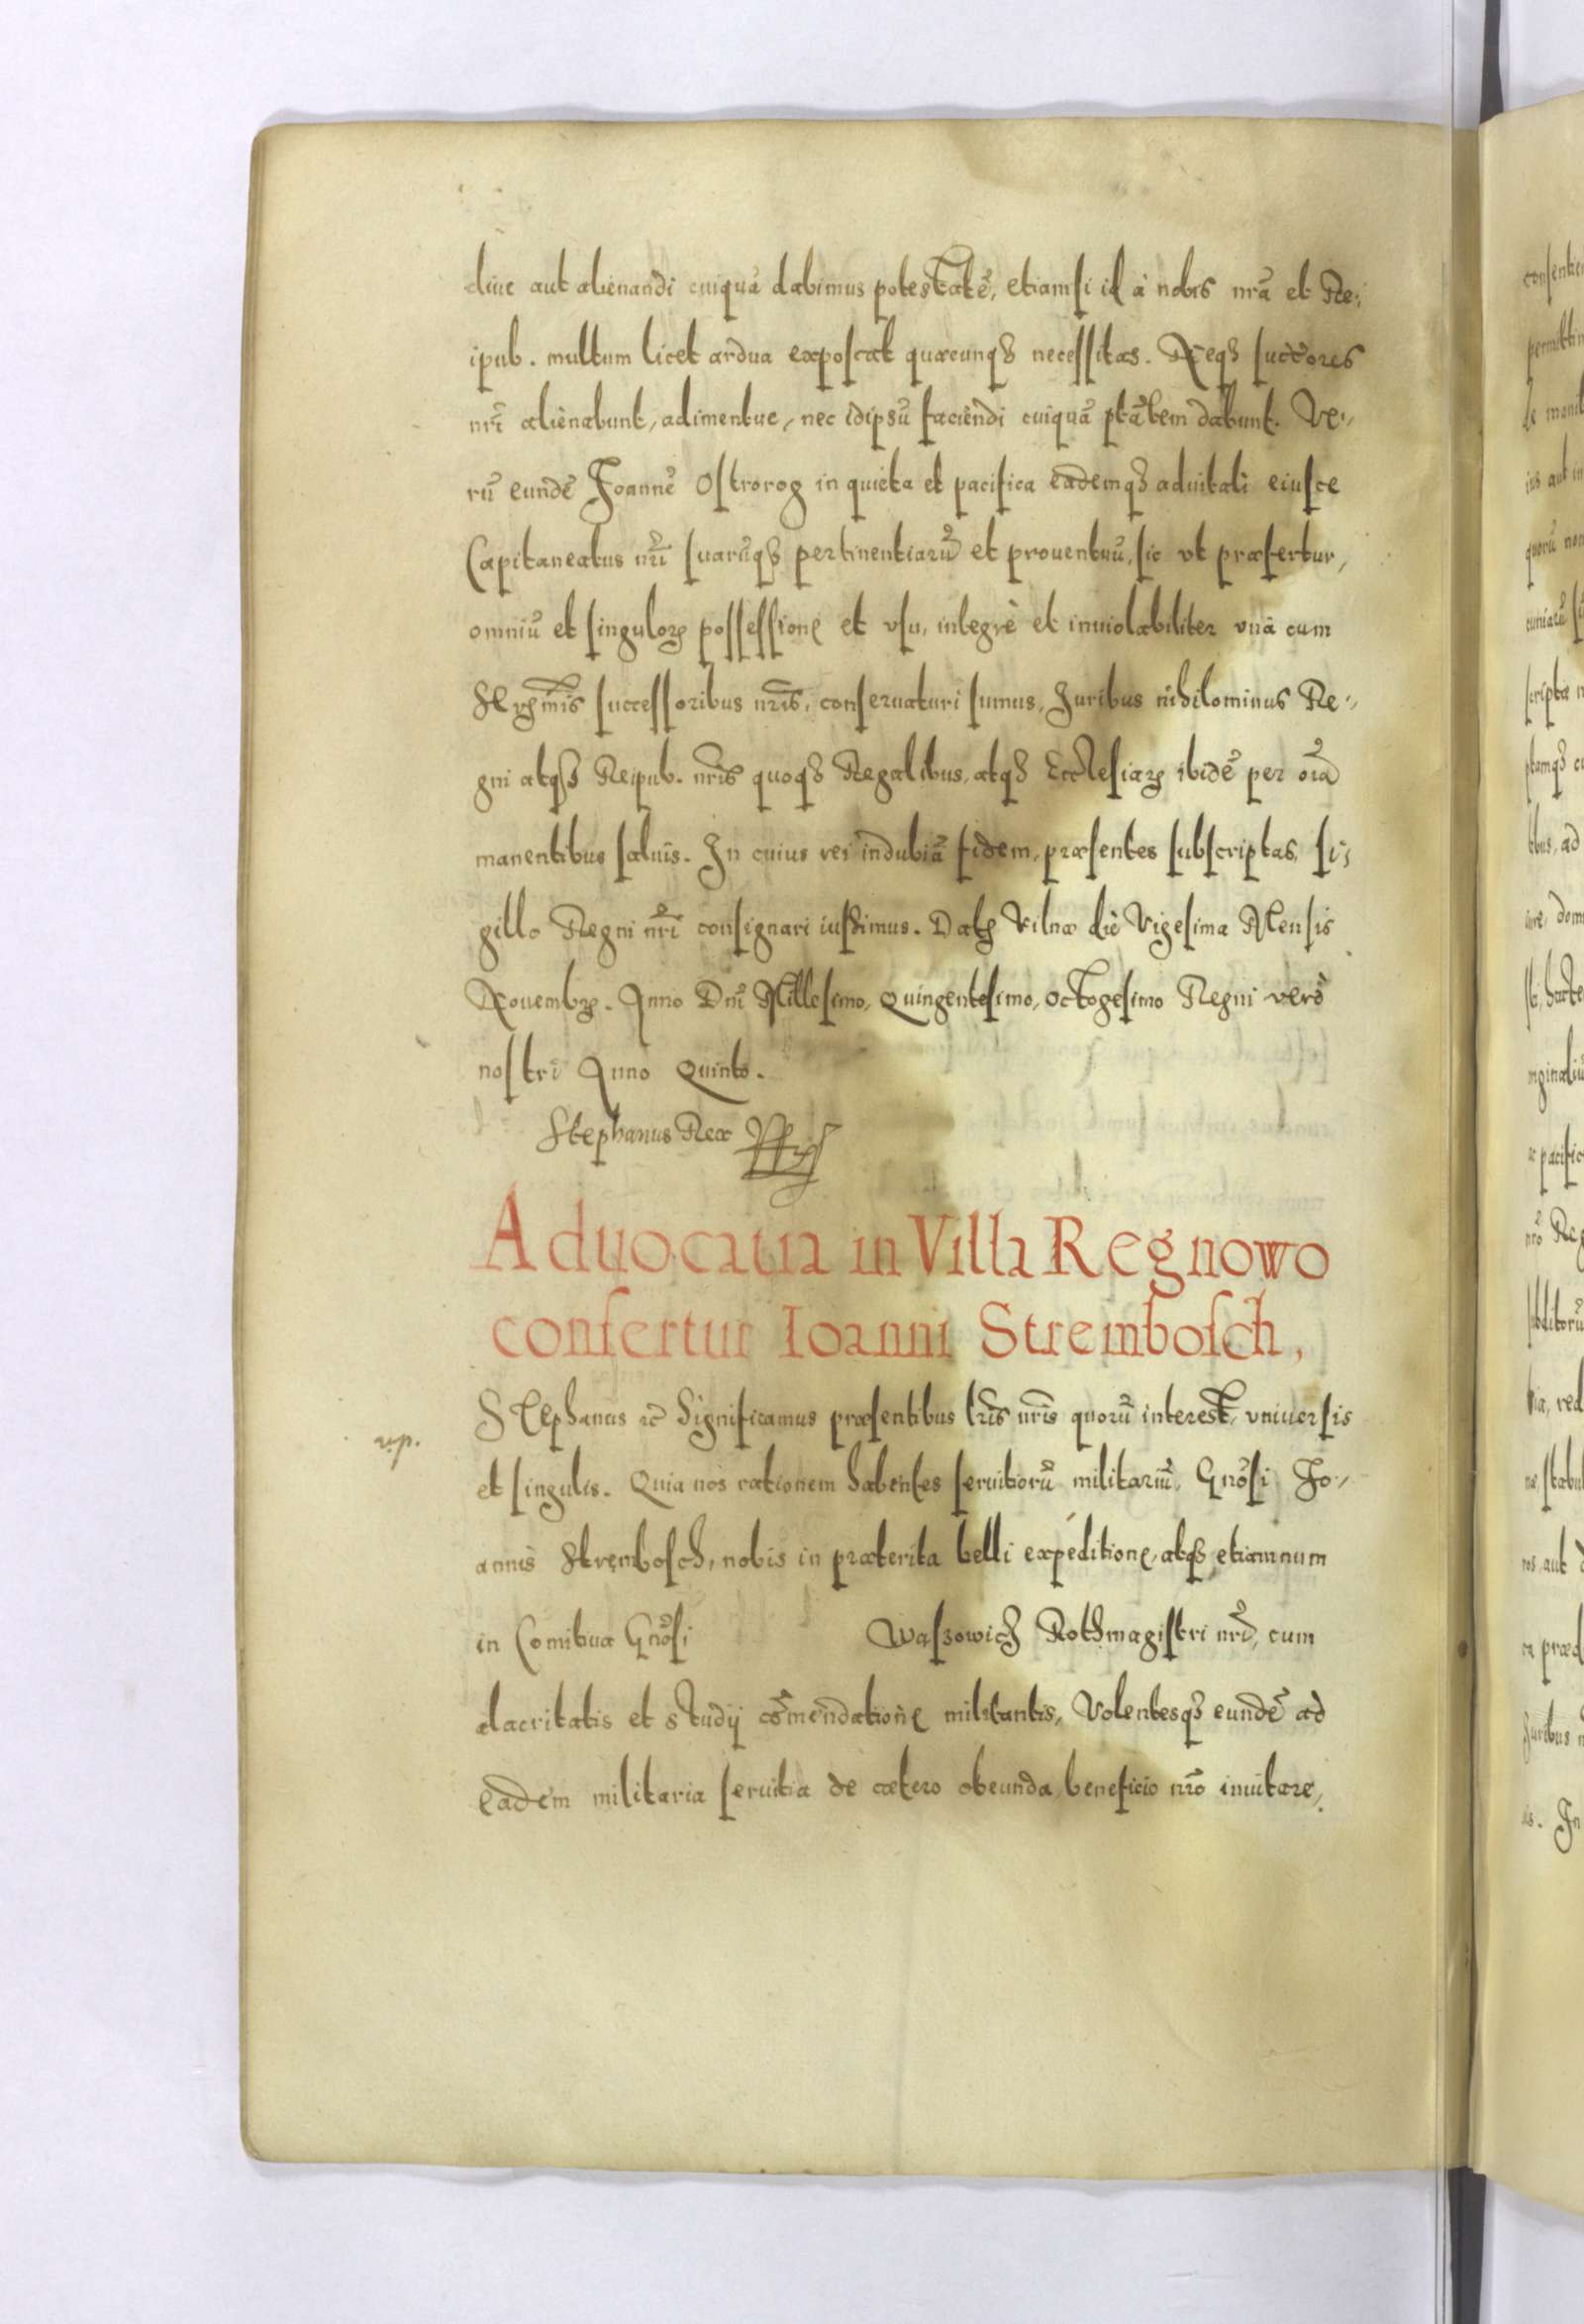 diue aut alienandi cuiquã dabimus potestatẽ, etiamsi id à nobis nrã et Re-
ipub. multum licet ardua exposcat quæcunqȝ necessitas. Neqȝ succores
nrĩ alienabunt, adimentue, nec idipsũ faciendi cuiquã ptãtem dabunt. Ve-
rũ eundẽ Joannẽ Ostrorog in quieta et pacifica eademqȝ aduitali eiusce
Capitaneatus nrĩ suarũqȝ pertinentiarũ et prouentuũ, sic vt præfertur,
omniũ et singuloꝝ possessione et vsu, integrè et inuiolabiliter vnà cum
Serẽmis successoribus nrĩs, conseruaturi sumus, Juribus nihilominus Re-
gni atqȝ Reipub. nrĩs quoqȝ Regalibus, atqȝ Ecclesiaꝝ ibidẽ per oĩa
manentibus saluis. In cuius rei indubiã fidem, præsentes subscriptas, si-
gillo Regni nrĩ consignari iussimus. Datꝝ Vilnæ die Vigesima Mensis
Nouembꝝ. Anno Dnĩ Millesimo, Quingentesimo, Octogesimo Regni verò
nostri Anno Quinto.
Stephanus Rex
Aduocatia in Villa Regnowo
confertur Ioanni Strembosch,
Stephanus ꝛc̃ Significamus præsentibus lrĩs nrĩs quorũ interest, vniuersis
et singulis. Quia nos rationem habentes seruitiorũ militariũ, Gnõsi Jo-
annis Strembosch, nobis in præterita belli expéditione, atqȝ etiamnum
in Comitiua Gnõsi Wąsowich Rothmagistri nrĩ, cum
alacritatis et studij cõmendatione militantis, Volentesqȝ eundẽ ad
eadem militaria seruitia de cætero obeunda, beneficio nrõ inuitare,